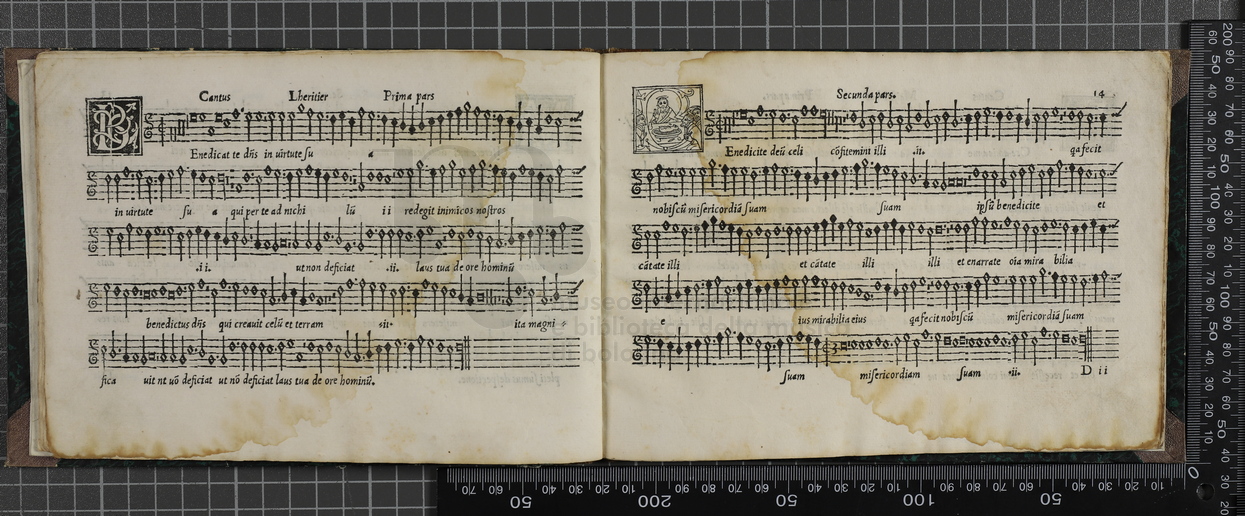 Cantus Lheritier Prima pars
BEnedicat te dñs in uirtute ſu a
in uirtute ſu a qui per te ad nichi lũ ii redegit inimicos noſtros
.ii. ut non deficiat .ii. laus tua de ore hominũ
benedictus dñs qui creauit celũ et terram .ii. ita magni
fica uit nt uõ deficiat ut nõ deficiat laus tua de ore hominũ.
Secunda pars. 14
BEnedicite deũ celi cõfitemini illi .ii. qa fecit
nobiſcũ miſericordiã ſuam ſuam ipſũ benedicite et
cãtate illi et cãtate illi illi et enarrate oīa mira bilia
e ius mirabilia eius qa fecit nobiſcũ miſericordiã ſuam
ſuam miſericordiam ſuam .ii. D ii
museo
e biblioteca della mu
di bolo